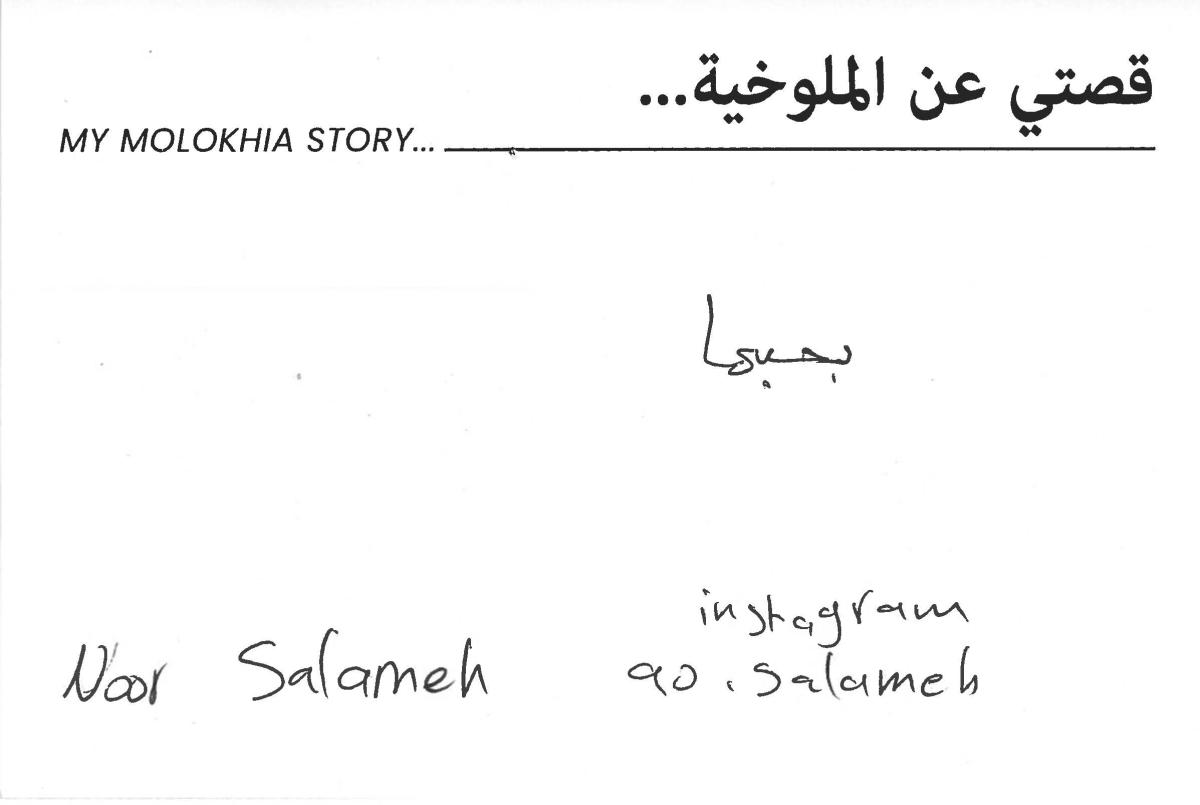 قصتي عن الملوخية...
MY MOLOKHIA STORY...
بحبها
instagram
Noor Salameh
90.salameh